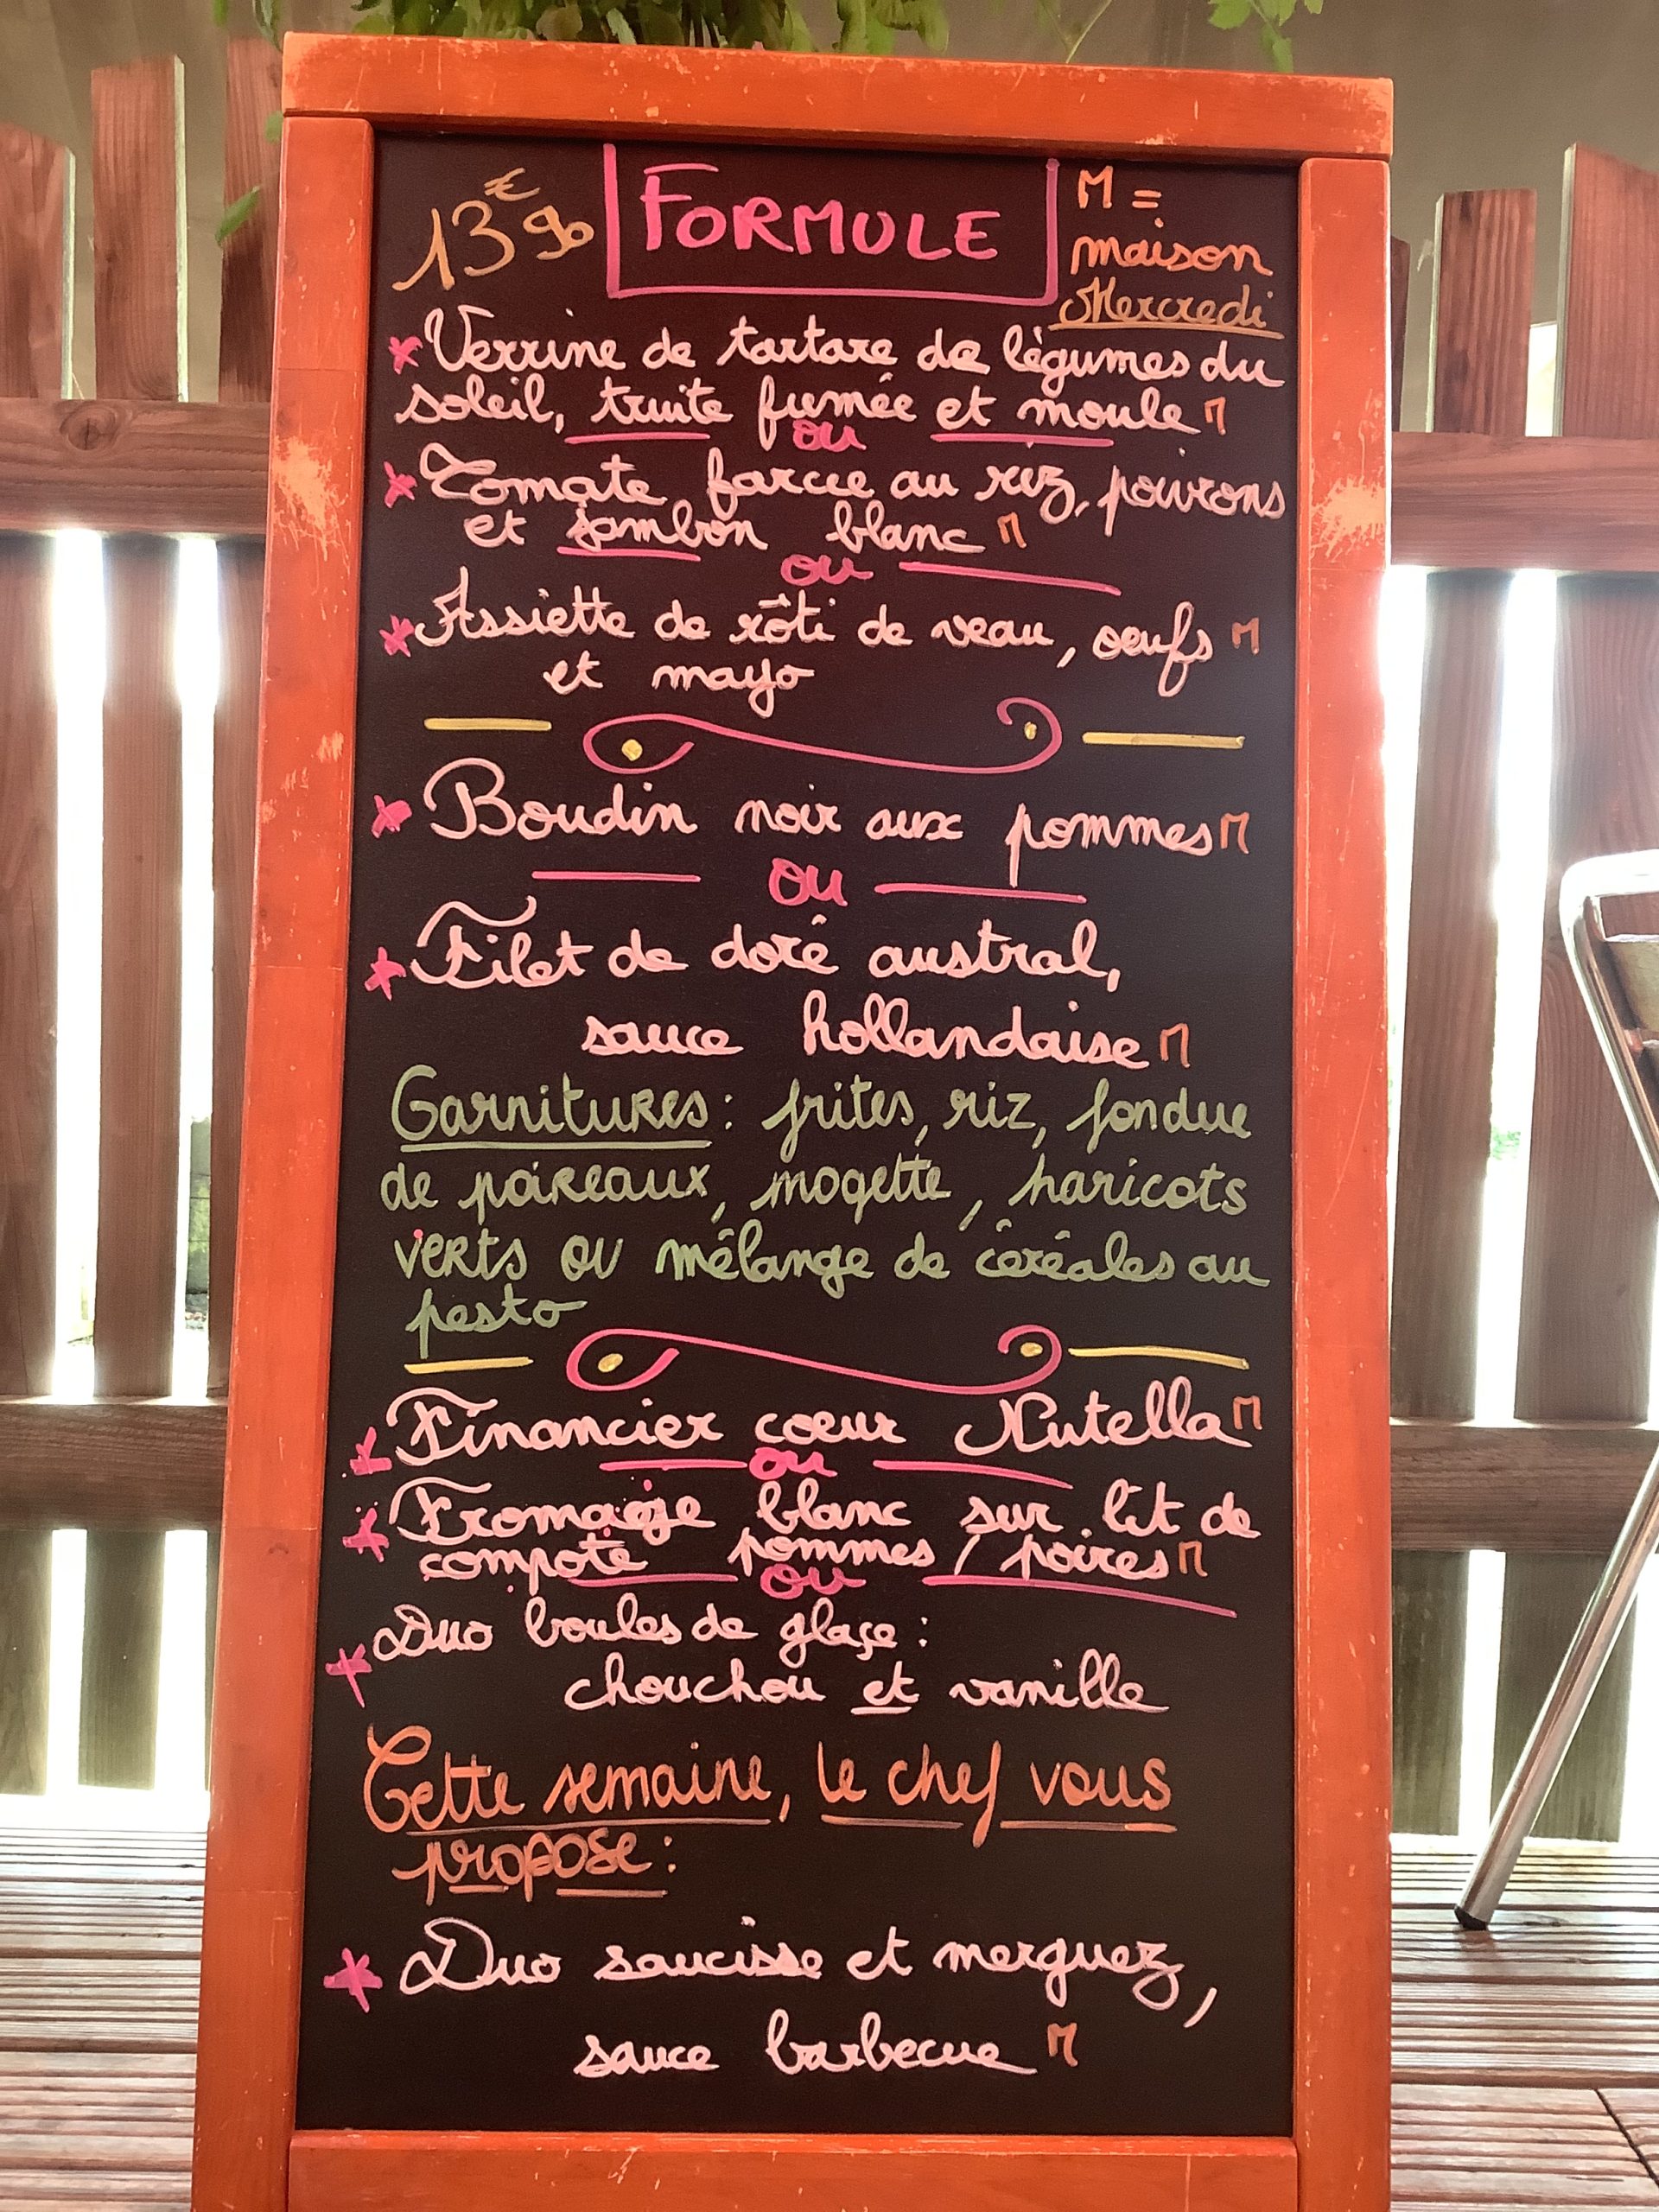 13€90 FORMULE M =
maison
Mercredi
* Verrine de tartare de légumes du
soleil, truite fumée et moule M
ou
* Tomate farcie au riz, poivrons
et jambon blanc M
ou
* Assiette de rôti de veau, oeufs M
et mayo
* Boudin noir aux pommes M
ou
* Filet de doré austral,
sauce hollandaise M
Garnitures : frites, riz, fondue
de poireaux, mogette, haricots
verts ou mélange de céréales au
pesto
* Financier coeur Nutella M
ou
* Fromage blanc sur lit de
compote pommes / poires M
ou
* Duo boules de glace :
chouchou et vanille
Cette semaine, le chef vous
propose :
* Duo saucisse et merguez,
sauce barbecue M